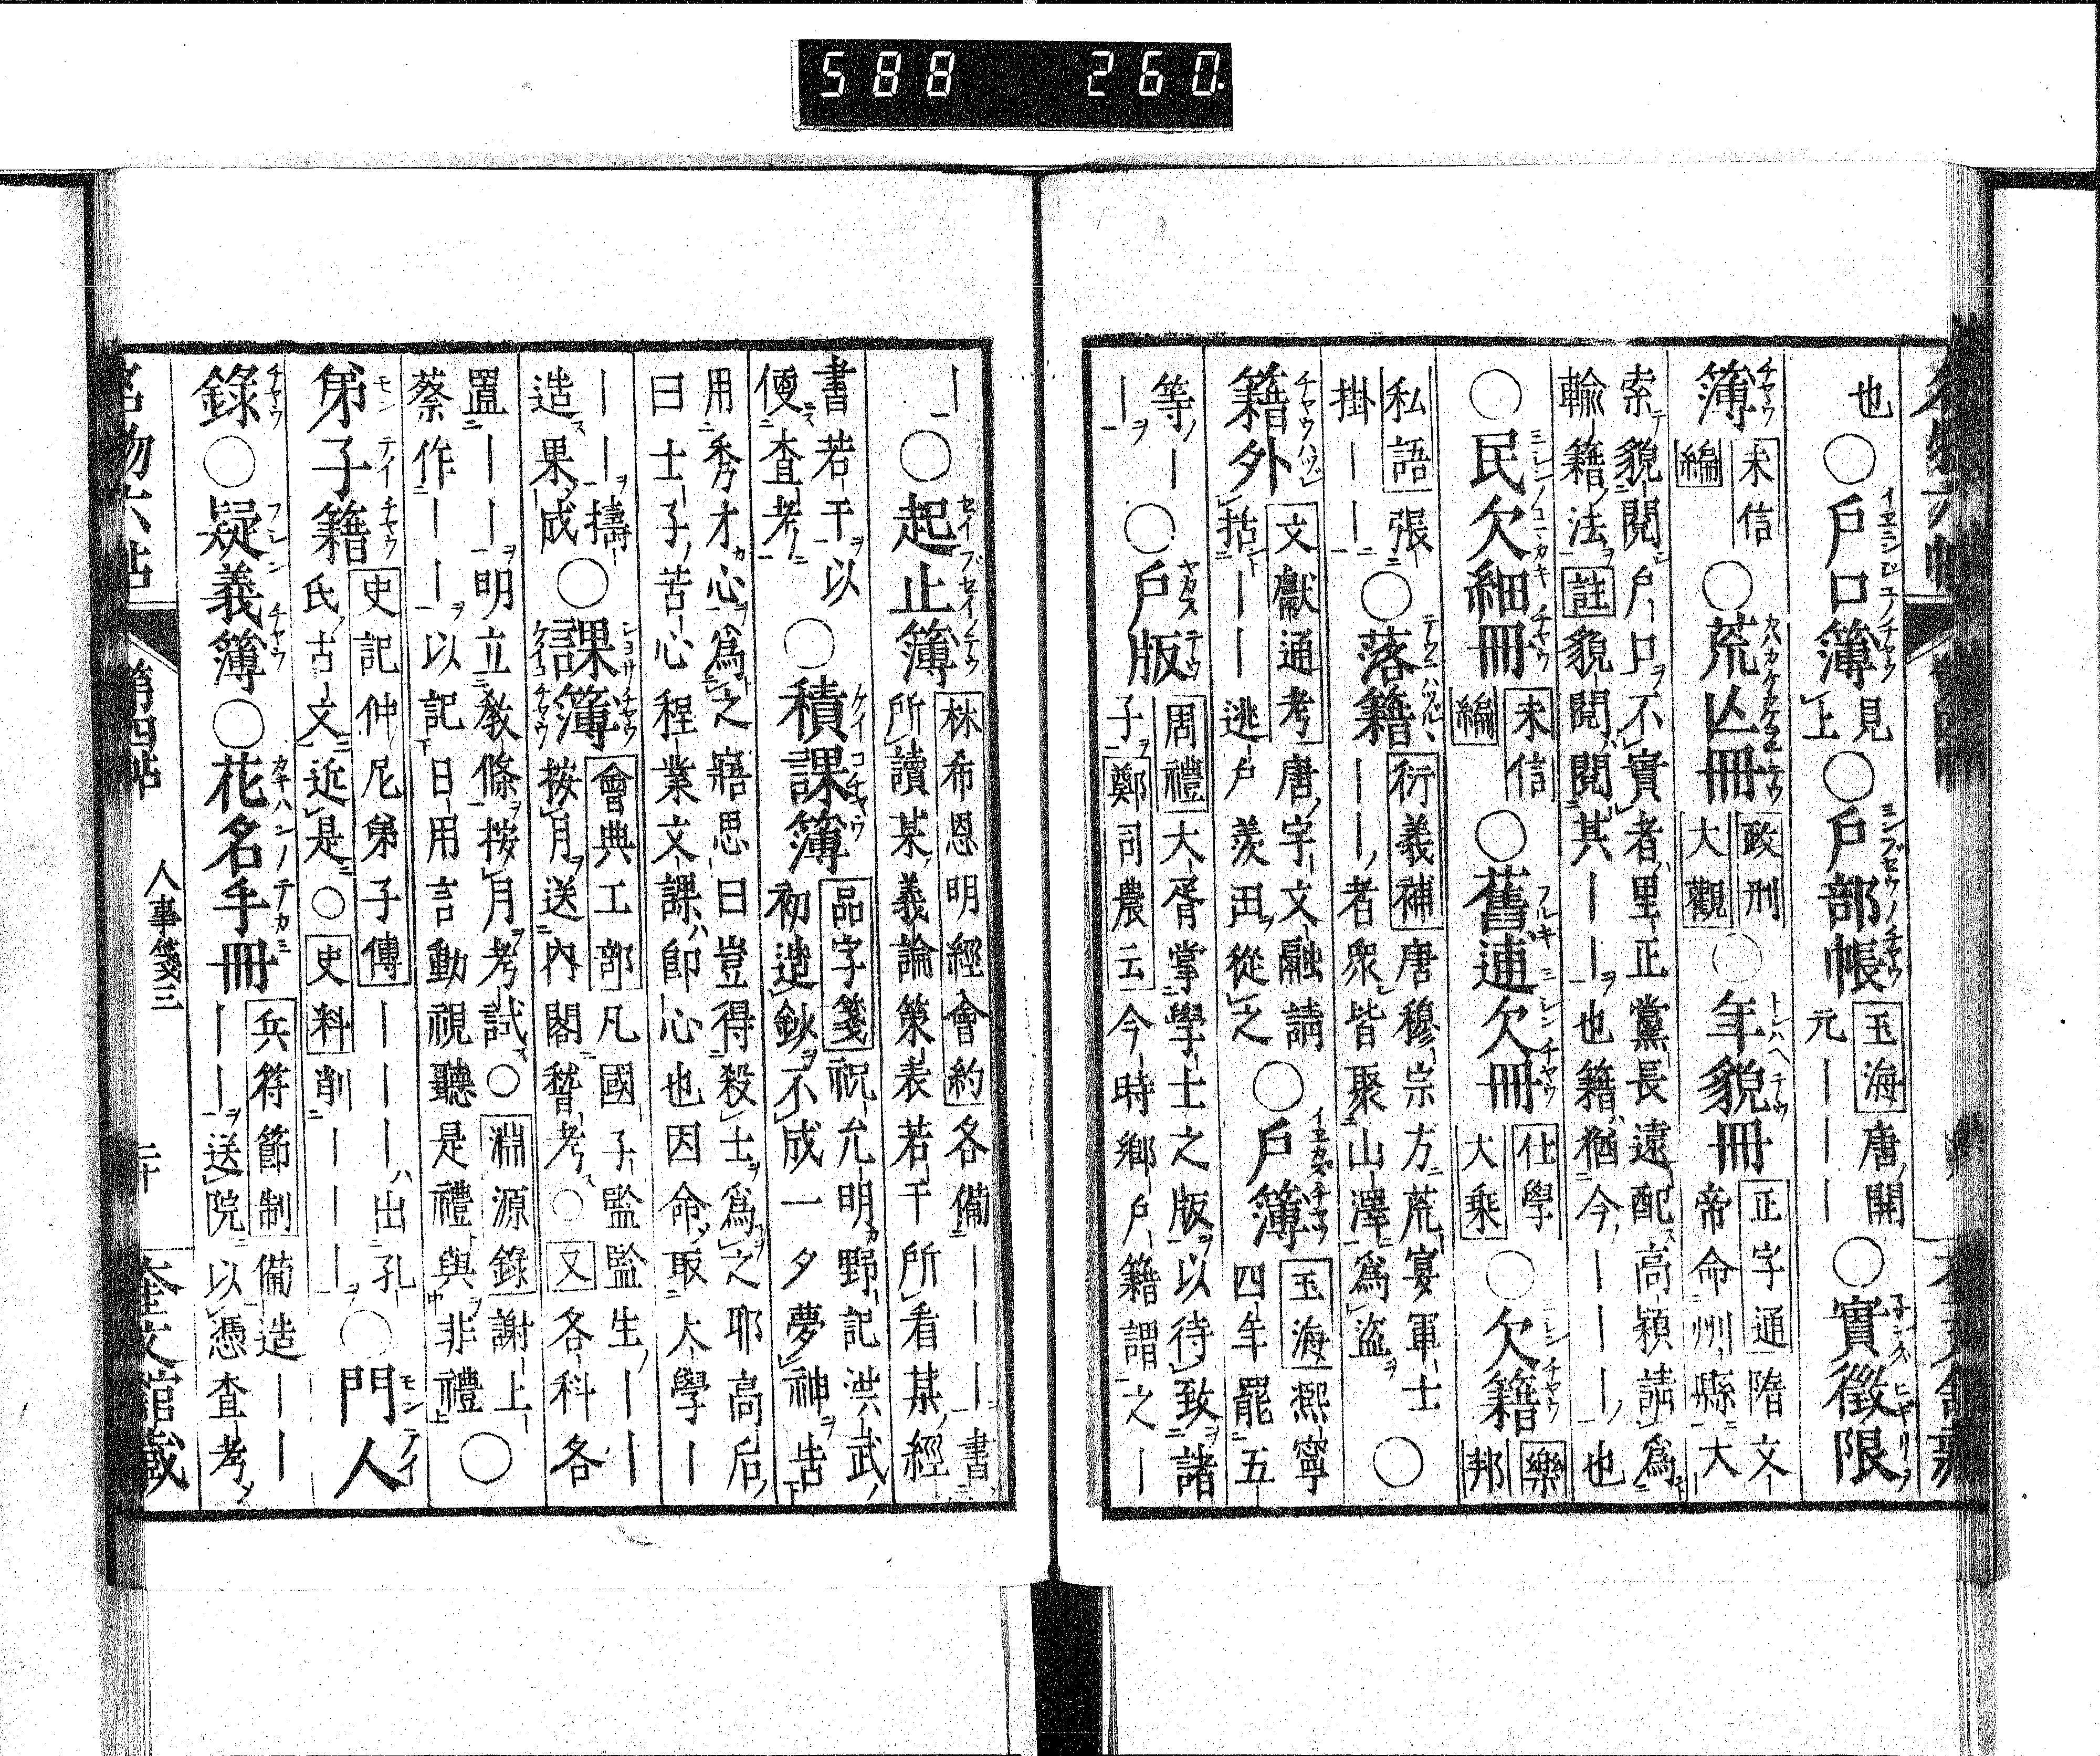 588 260.
也○戶口簿見上○戶部帳玉海唐開元｜｜｜○實徵限
簿未信編○荒亾冊政刑大觀○年貌冊正字通隋文帝命州縣大
索貌閱戶口不實者里正黨長遠配高穎請爲
輸籍法註貌閱閱其｜｜也籍猶今｜｜｜也
○民欠細冊未信編○舊逋欠冊仕學大乘○欠籍樂邦
私語張掛｜｜｜○落籍衍義補唐穆宗方荒宴軍士｜｜者衆皆聚山澤爲盜○
籍外文獻通考唐宇文融請括｜｜逃戶羨田從之○戶簿玉海熙寧四年罷五
等｜｜○戶版周禮大胥掌學士之版以待致諸子鄭司農云今時鄉戶籍謂之｜
｜○起止簿林希恩明經會約各備｜｜｜書所讀某義論策表若干所看某經
書若干以便查考○積課簿品字箋祝允明野記洪武初造鈔不成一夕夢神告
用秀才心爲之寤思曰豈得殺士爲之耶高后
曰士子苦心程業文課卽心也因命取太學｜
｜｜擣造果成○課簿會典工部凡國子監監生｜｜按月送內閣稽考○又各科各
置｜｜明立教條按月考試○淵源錄謝上蔡作｜｜以記日用言動視聽是禮與非禮○
弟子籍史記仲尼弟子傳｜｜｜出孔氏古文近是○史料削｜｜｜○門人
錄○疑義簿○花名手冊兵符節制備造｜｜｜｜送院以憑查考
名物六帖 第四帖 人事箋三 二十 奎文館藏